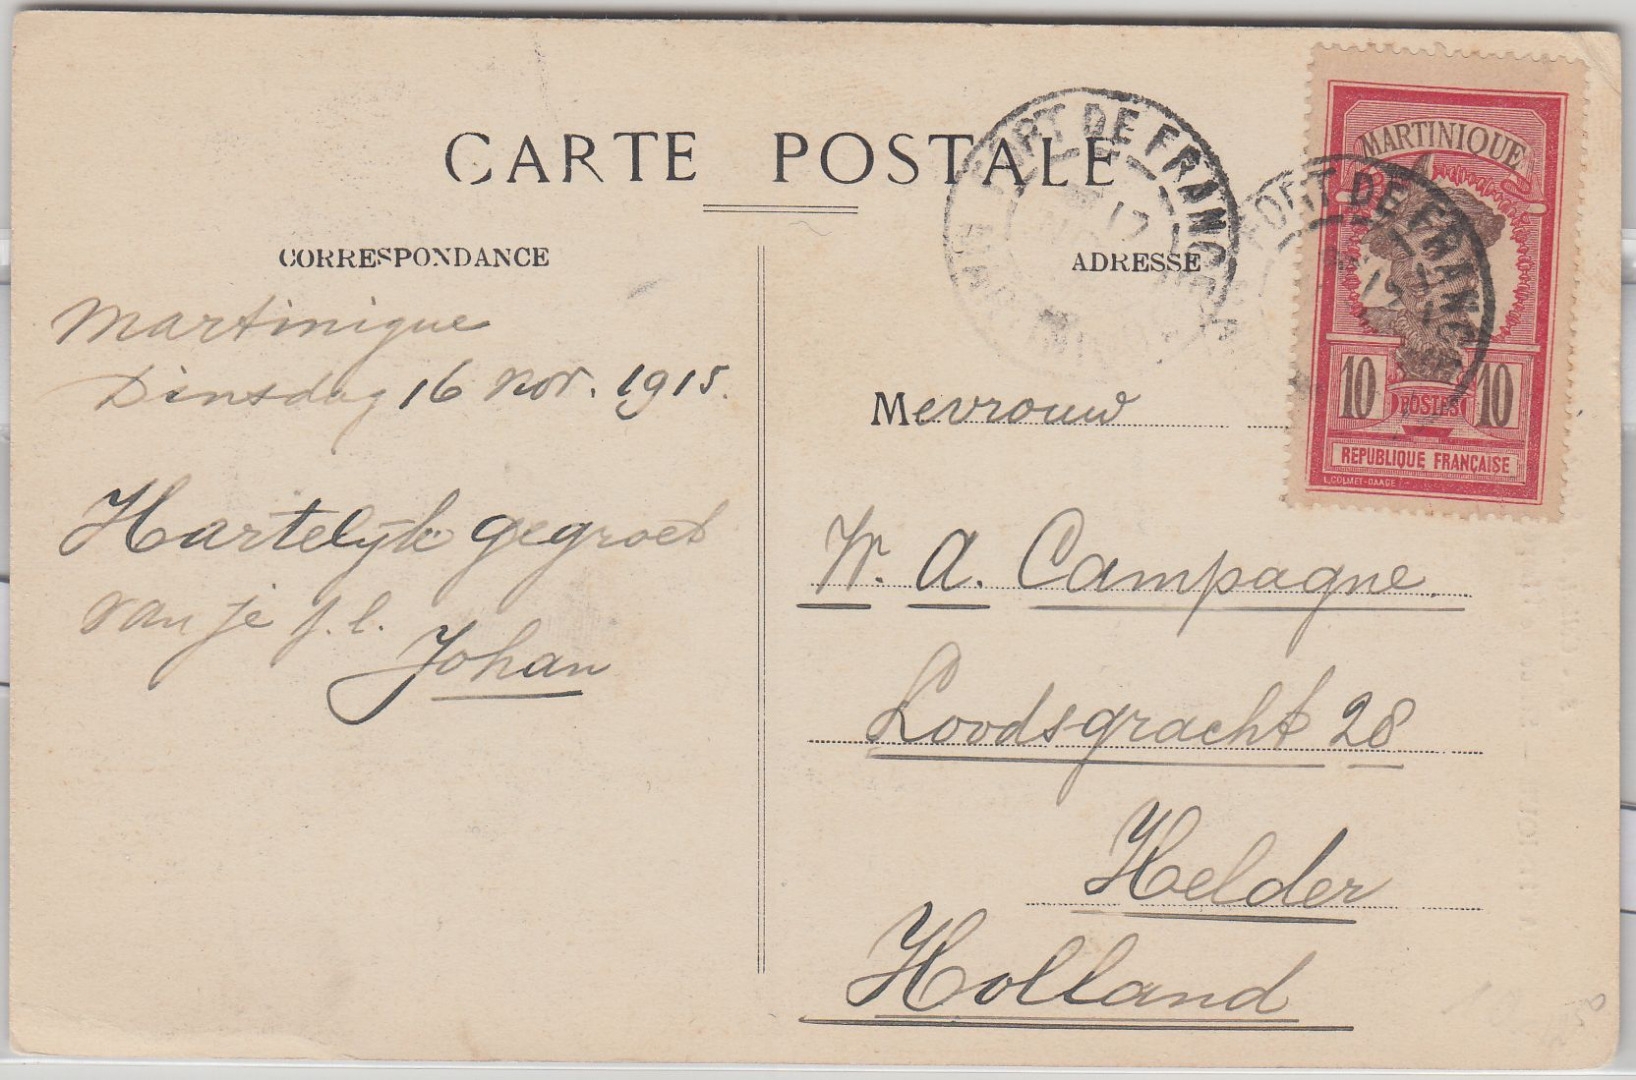 CARTE POSTALE
CORRESPONDANCE
Martinique
Dinsdag 16 Nov. 1915.
Hartelijk gegroet
van je j.l.
Johan
ADRESSE
Mevrouw
W. A. Campagne
Loodsgracht 28
Helder
Holland
FORT DE FRANCE
17
MARTINIQUE
FORT DE FRANC
MARTINIQUE
10 POSTES 10
REPUBLIQUE FRANÇAISE
L.COLMET-DAAGE